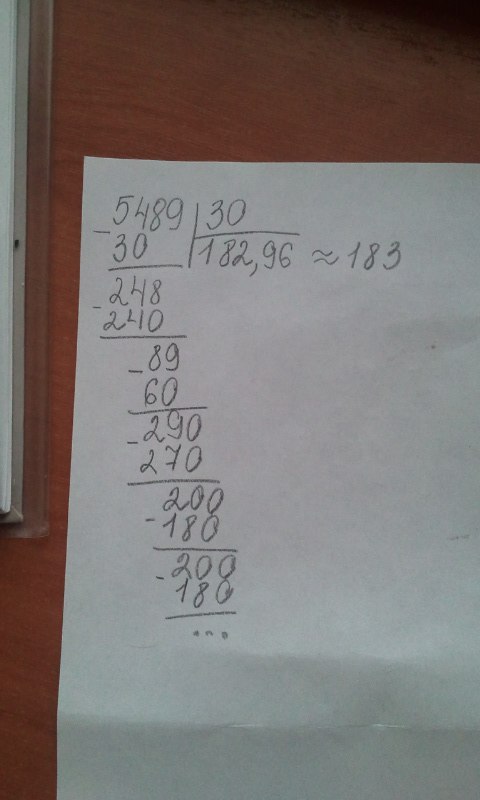 5489 30
- 30 182,96 ≈ 183
248
- 240
89
- 60
290
- 270
200
- 180
200
- 180
...